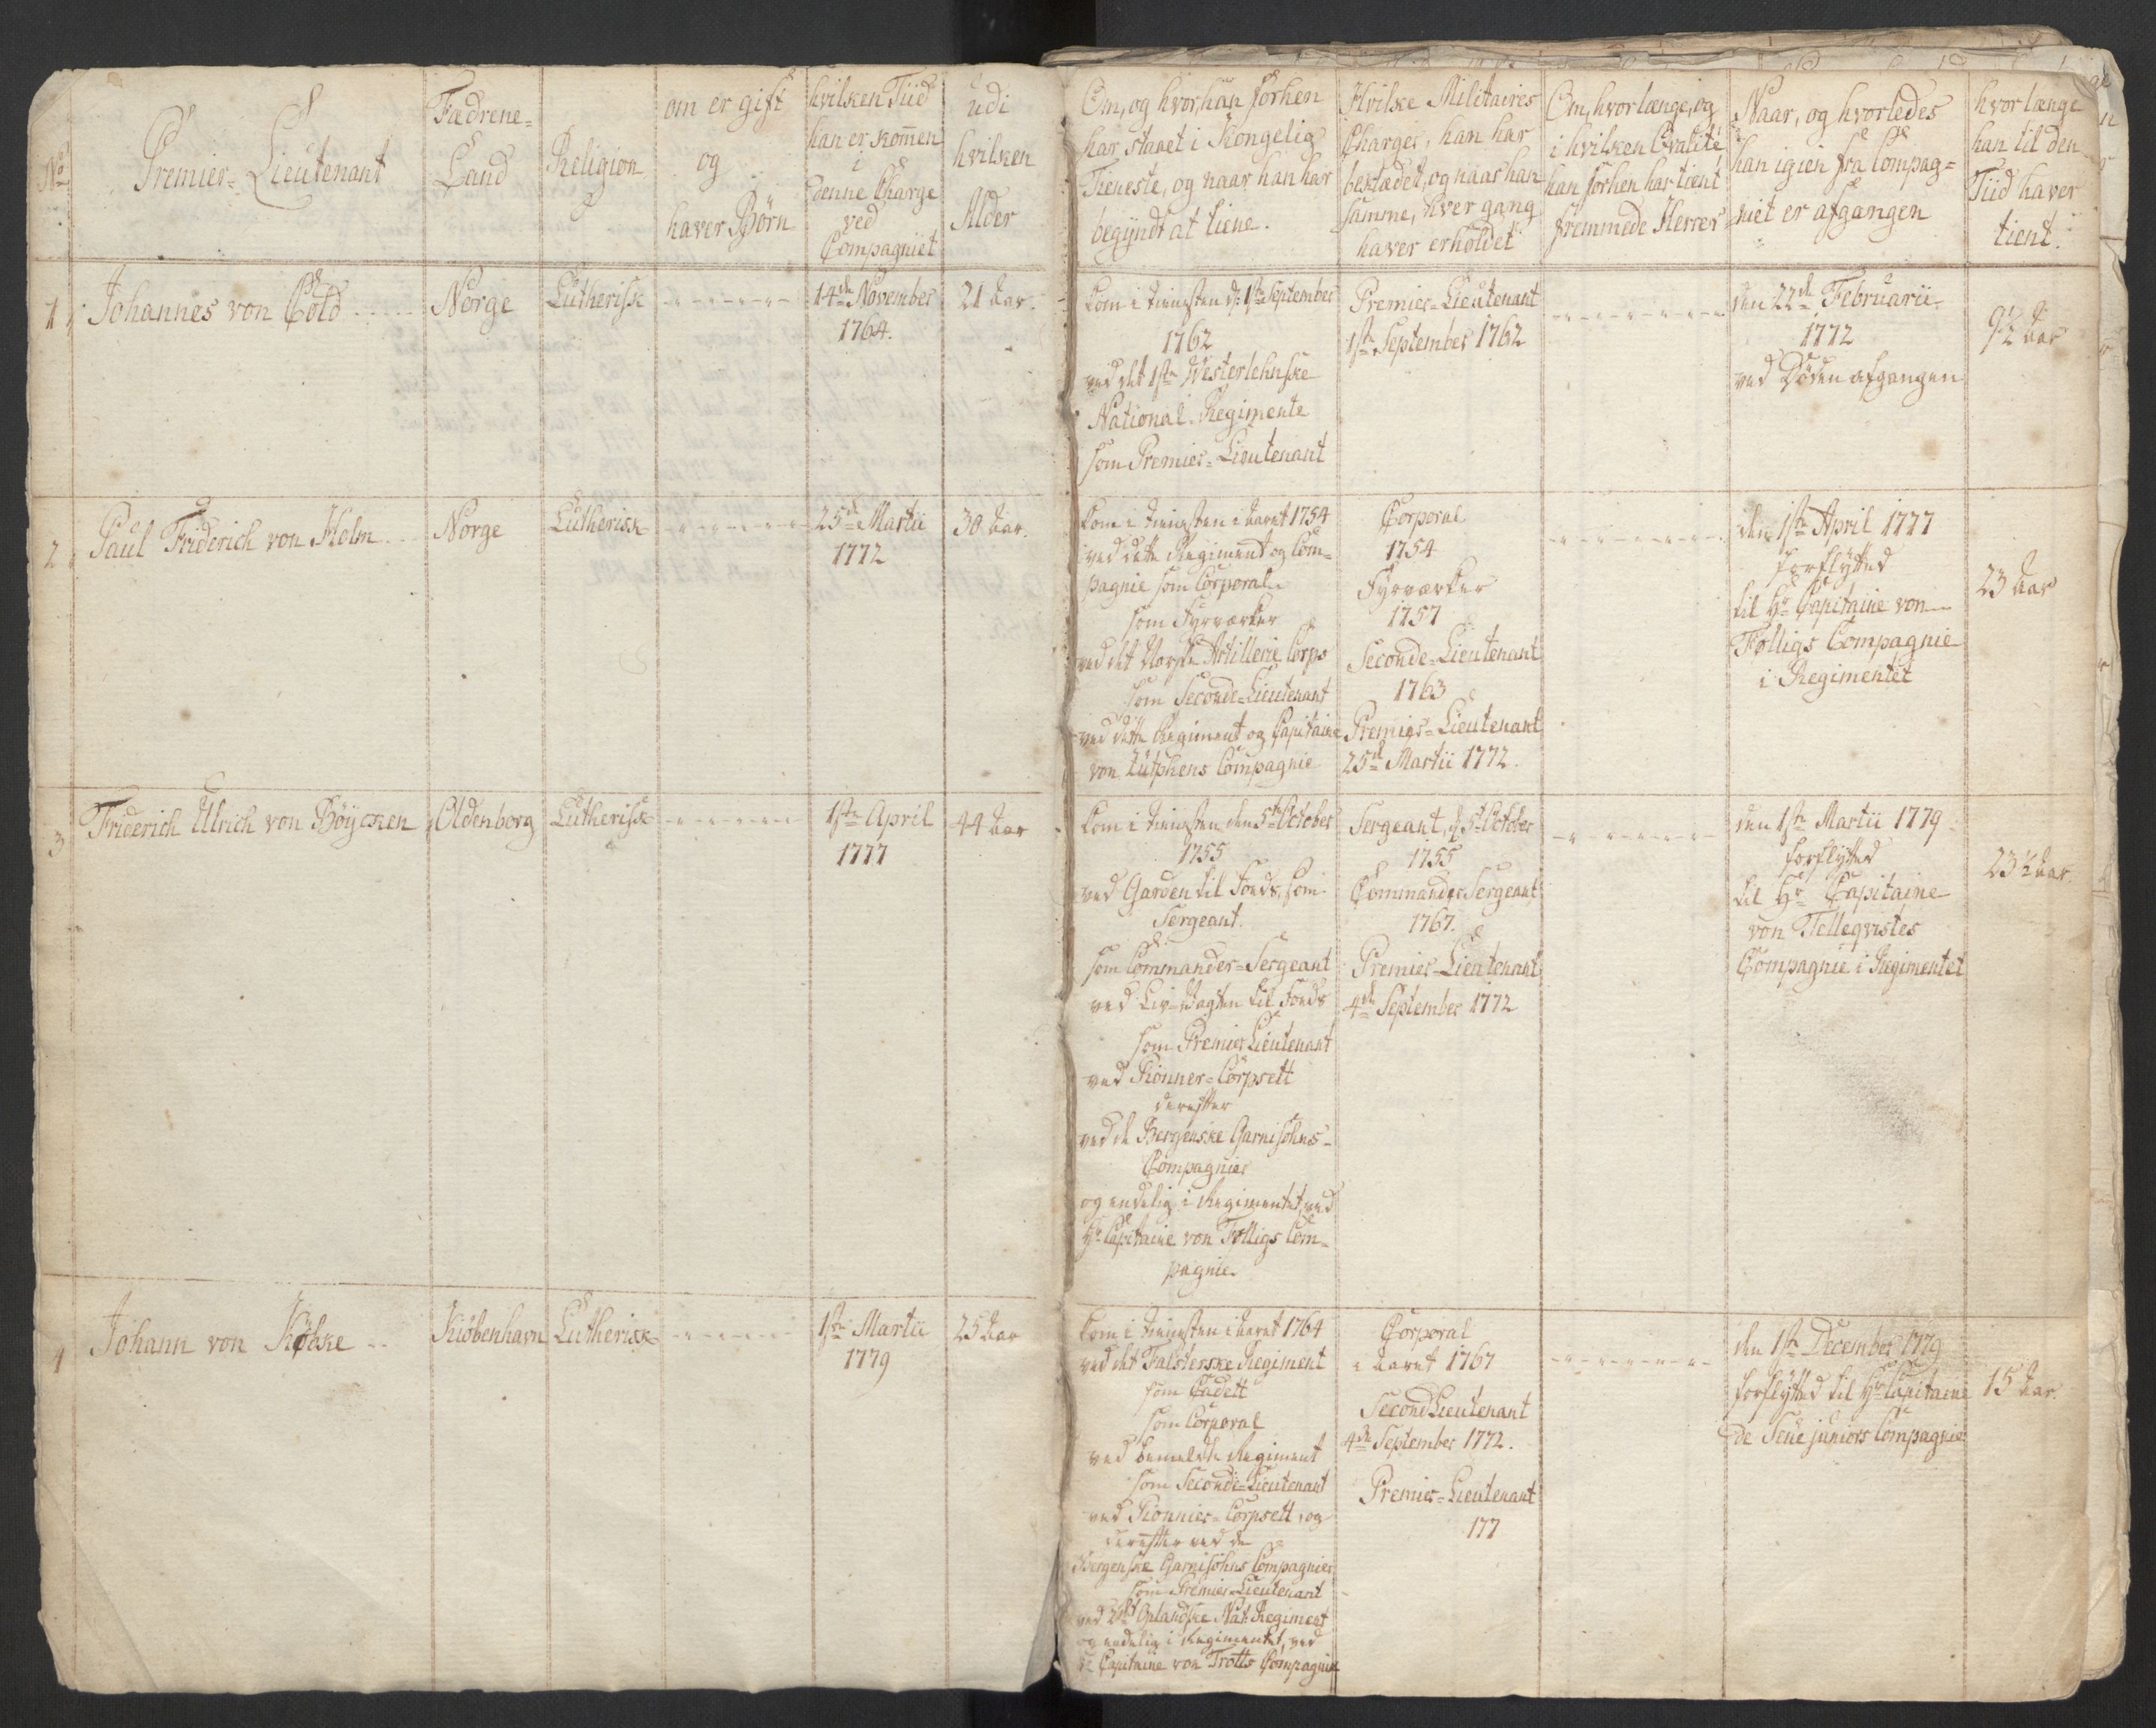 No
Premier-Lieutenant
Fædrene-
Land
Religion
om er gift
og
haver Börn
hvilken Tiid
han er kommen
i
denne Charge
ved
Compagniet
udi
hvilken
Alder
Om, og hvor han forhen
har staaet i Kongelig
Tieneste, og naar han har
begyndt at tiene.
Hvilke Militaires
Charger, han har
beklædet, og naar han
samme, hver gang
haver erholdet
Om, hvorlænge, og
i hvilken Qvalité
han forhen har tient
fremmede Herrer
Naar, og hvorledes
han igien fra Compag-
niet er afgangen
hvorlænge
han til den
Tiid haver
tient.
1
Johannes von Cold
Norge
Lutherisk
14de November
1764.
21 Aar.
Kom i tienesten d: 1ste September
1762
ved det 1ste Westerlehnske
National-Regimente
som Premier-Lieutenant
Premier-Lieutenant
1ste September 1762
den 22de Februarii
1772
ved Döden afgangen
9½ Aar
2
Paul Friderich von Holm
Norge
Lutherisk
25de Martii
1772
30 Aar.
Kom i tienesten i Aaret 1754
ved dette Regiment og Com-
pagnie som Corporal
som Fyrværker
ved det Norske Artillerie Corps
som Seconde-Lieutenant
ved dette Regiment og Capitaine
von Zütphens Compagnie
Corporal
1754
Fyrværker
1757
Seconde-Lieutenant
1763
Premier-Lieutenant
25de Martii 1772.
den 1ste April 1777
forflytted
til Hr Capitaine von
Følligs Compagnie
i Regimentet
23 Aar
3
Friderich Ulrich von Böycken
Oldenborg
Lutherisk
1ste April
1777
44 Aar
Kom i tienesten den 5te October
1755
ved Garden til Fods, som
Sergeant.
som Commander-Sergeant
ved Liv-Vagten til Fods
som Premier Lieutenant
ved Pionner-Corpsett
derefter
ved de Bergenske Garnisohns-
Compagnier
og endelig i Regimentet, ved
Hr Capitaine von Følligs Com-
pagnie.
Sergeant, d. 5te October
1755
Commander Sergeant
1767.
Premier-Lieutenant
4de September 1772
den 1ste Martii 1779
forflytted
til Hr Capitaine
von Telleqvistes
Compagnie i Regimentet
23½ Aar.
4
Johann von Köbke
Kiöbenhavn
Lutherisk
1ste Martii
1779
25 Aar
Kom i tienesten i Aaret 1764
ved det Falsterske Regiment
som Cadett
som Corporal
ved bemeldte Regiment
som Seconde-Lieutenant
ved Pionnier-Corpsett, og
derefter ved de
Bergenske Garnisohns Compagnier
som Premier-Lieutenant
ved 2det Oplandske Nat: Regiment
og endelig i Regimentet, ved
Hr Capitaine von Trotts Compagnie
Corporal
i Aaret 1767
Second Lieutenant
4de September 1772.
Premier-Lieutenant
177
den 1ste December 1779
forflytted til Hr Capitaine
de Seue juniors Compagnie
15 Aar.